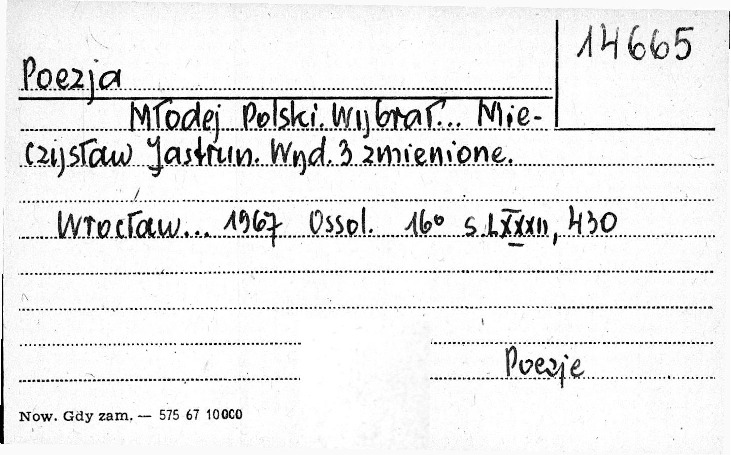 14665
Poezja
Młodej Polski. Wybrał... Mie-
czysław Jastrun. Wyd. 3 zmienione.
Wrocław... 1967 Ossol. 16° s. LXXXII, 430
Poezje
Now. Gdy zam. — 575 67 10000